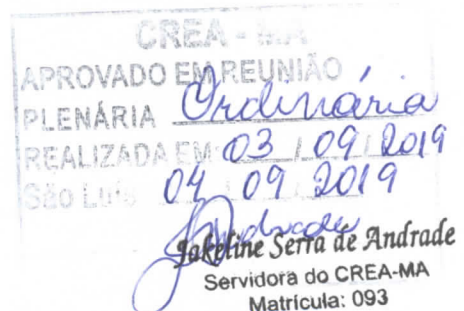 CREA - MA
APROVADO EM REUNIÃO
PLENÁRIA Ordinária
REALIZADA EM: 03 / 09 / 2019
São Luís 04 / 09 / 2019
Andrade
Jakeline Serra de Andrade
Servidora do CREA-MA
Matrícula: 093